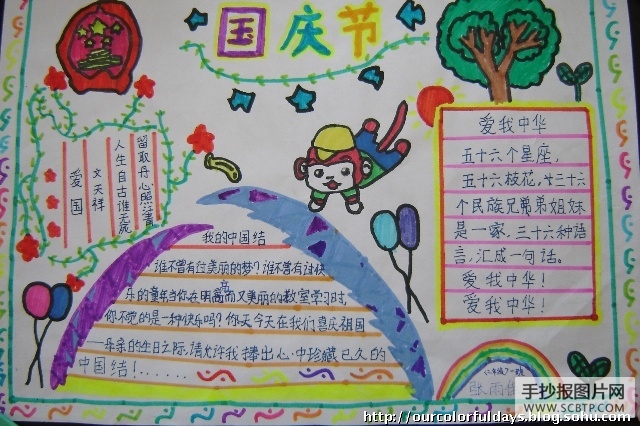 国庆节
留取丹心照汗青
人生自古谁无死
文天祥
爱国
爱我中华
五十六个星座,
五十六枝花,
个民族兄弟姐妹
是一家,三十六种语
言,汇成一句话。
爱我中华!
爱我中华!
我的中国结
谁不曾有过美丽的梦?谁不曾有过快
乐的童年当你在明亮而又美丽的教室学习时,
你不觉的是一种快乐吗?你天今天在我们喜庆祖国
——母亲的生日之际,请允许我捧出心中珍藏已久的
中国结!......
手抄报图片网
WWW.SCBTP.COM
http://ourcolorfuldays.blog.sohu.com